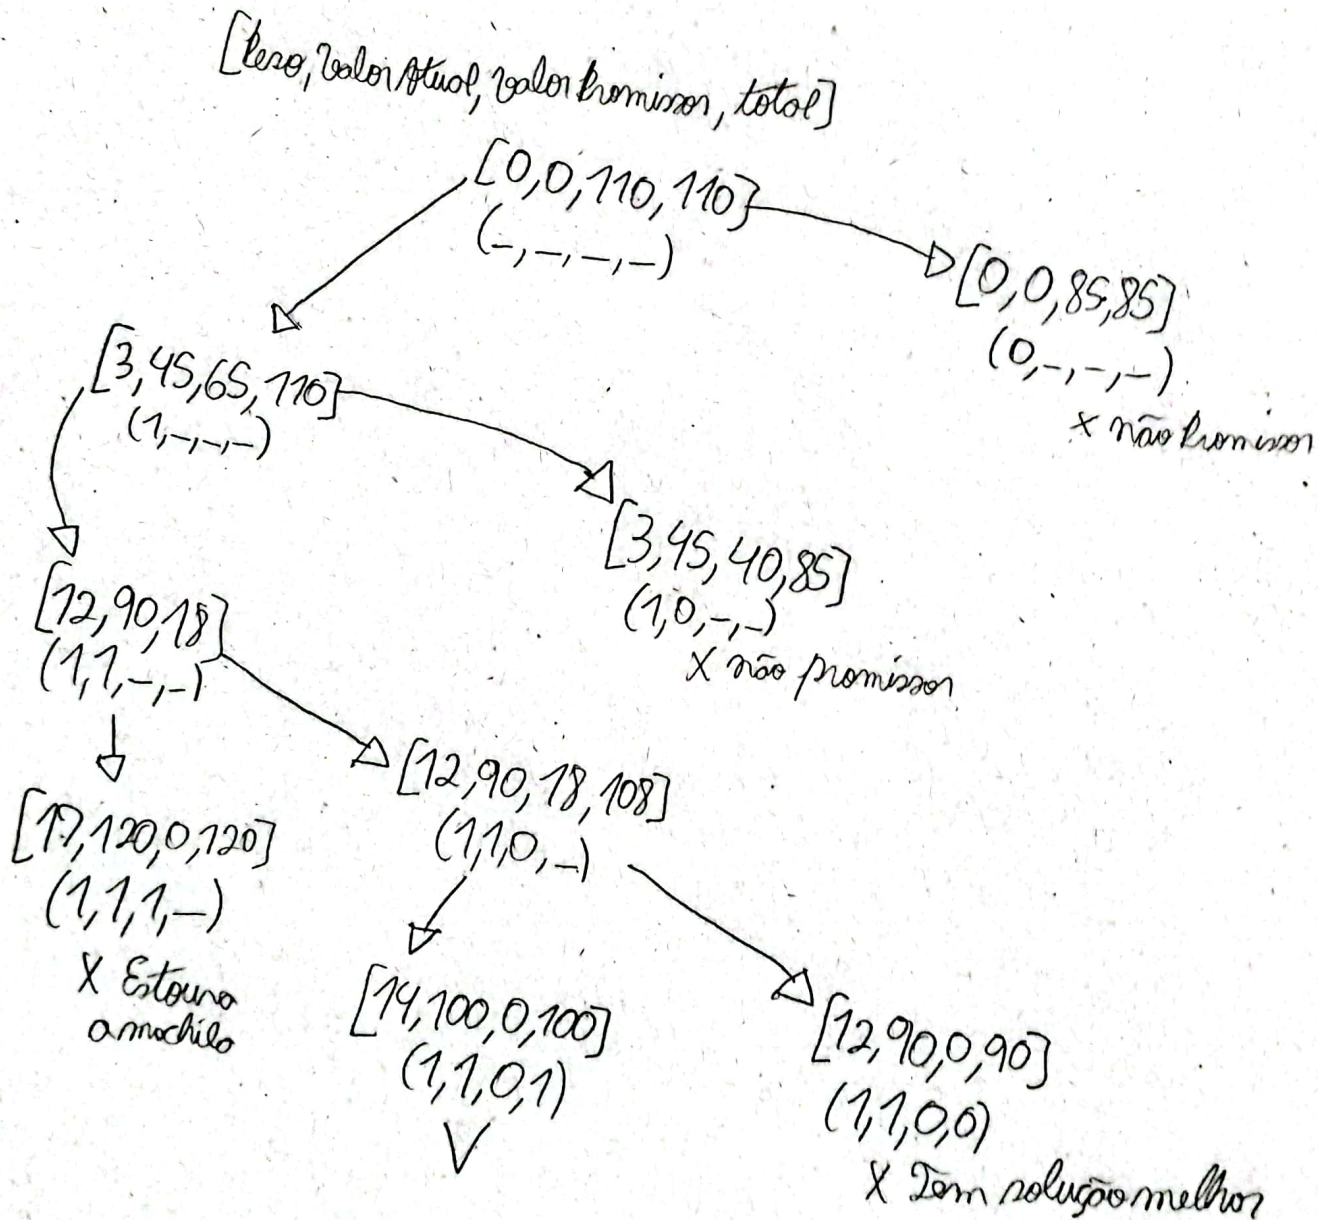 [Peso, Valor Atual, Valor Promissor, total]
[0,0,110,110]
(-,-,-,-)
[0,0,85,85]
(0,-,-,-)
X não Promissor
[3,45,65,110]
(1,-,-,-)
[3,45,40,85]
(1,0,-,-)
X não promissor
[12,90,18]
(1,1,-,-)
[12,90,18,108]
(1,1,0,-)
[17,120,0,120]
(1,1,1,-)
X Estoura
a mochila
[14,100,0,100]
(1,1,0,1)
V
[12,90,0,90]
(1,1,0,0)
X Tem solução melhor